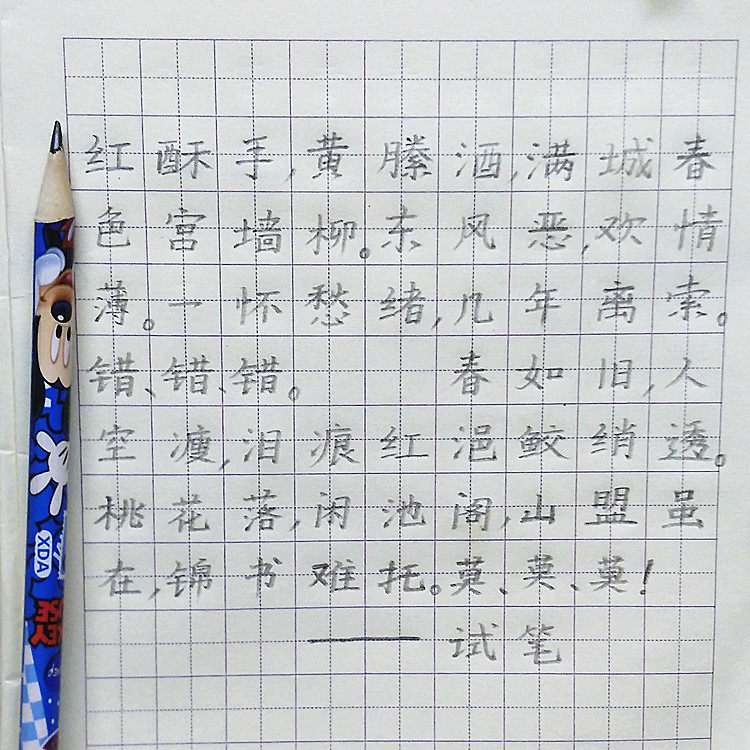 红酥手,黄滕酒,满城春
色宫墙柳。东风恶,欢情
薄。一怀愁绪,几年离索。
错、错、错。 春如旧,人
空瘦,泪痕红浥鲛绡透。
桃花落,闲池阁,山盟虽
在,锦书难托。莫、莫、莫!
——试笔
XDA